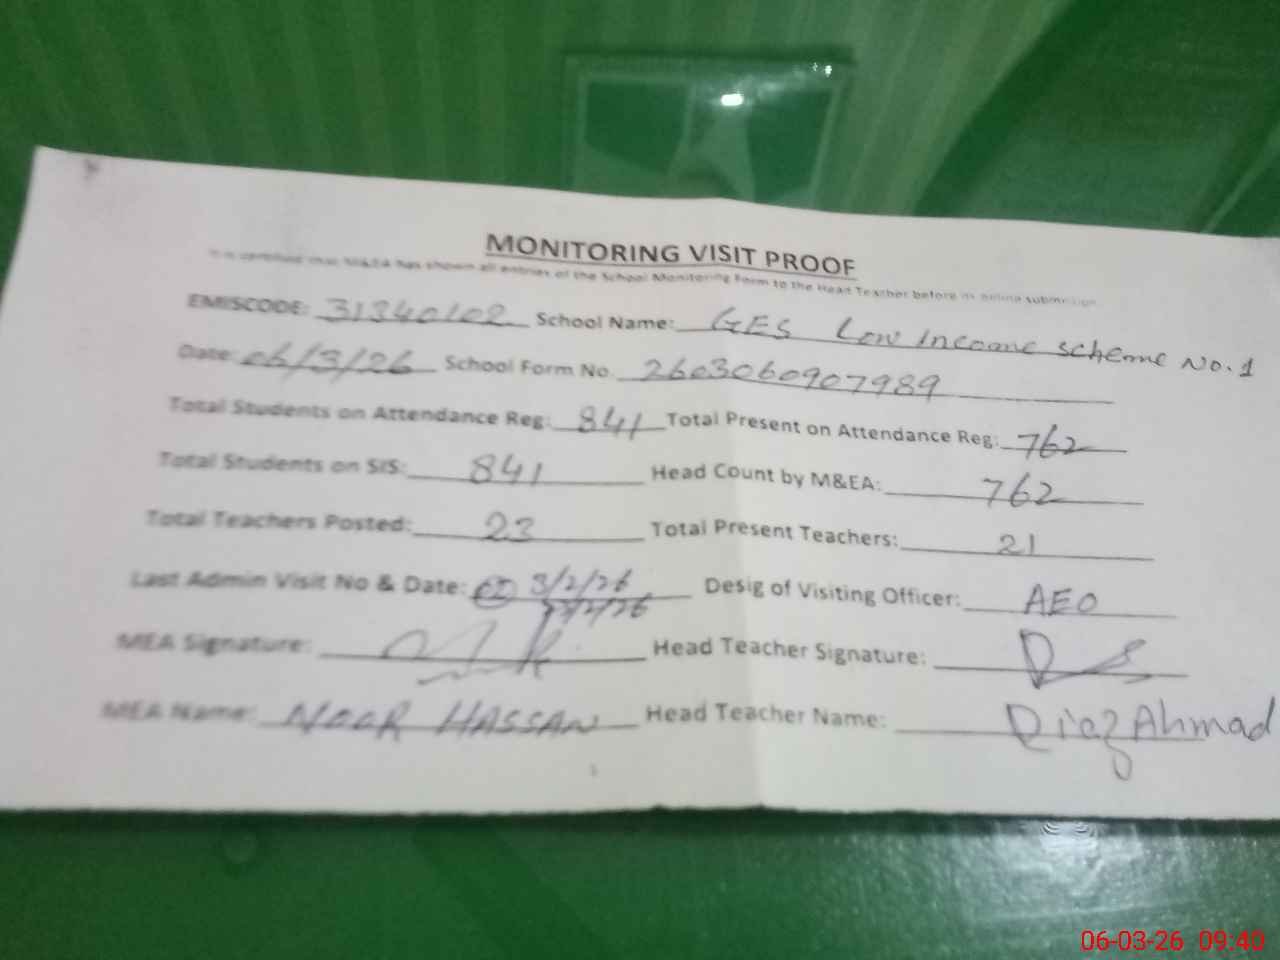 MONITORING VISIT PROOF
It is certified that M&EA has shown all entries of the School Monitoring Form to the Head Teacher before its online submission
EMISCODE: 31340102 School Name: GES Low Income Scheme No.1
Date: 06/3/26 School Form No. 2603060907989
Total Students on Attendance Reg: 841 Total Present on Attendance Reg: 762
Total Students on SIS: 841 Head Count by M&EA: 762
Total Teachers Posted: 23 Total Present Teachers: 21
Last Admin Visit No & Date: 3/2/26 Desig of Visiting Officer: AEO
MEA Signature: Head Teacher Signature:
MEA Name: NOOR HASSAN Head Teacher Name: Riaz Ahmad
06-03-26 09:40